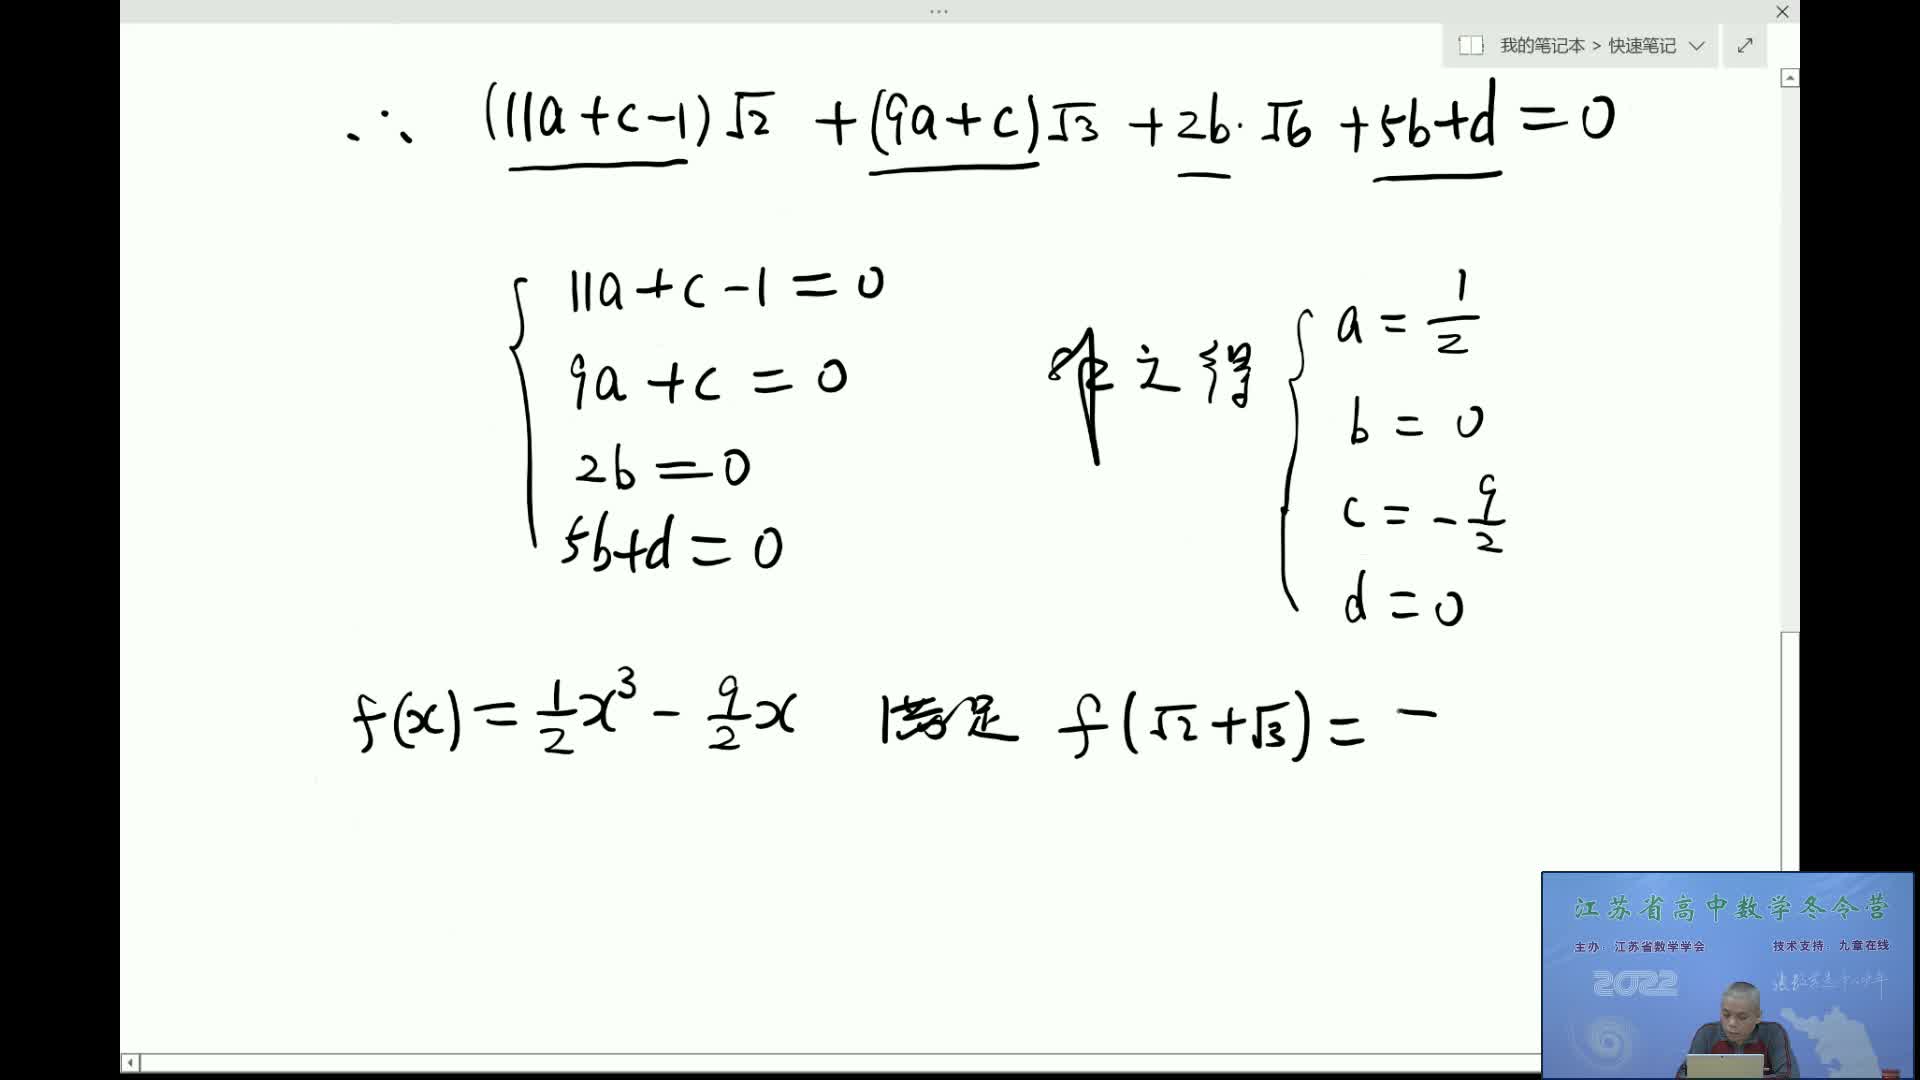 我的笔记本 > 快速笔记
∴ (11a+c-1)√2 + (9a+c)√3 + 2b·√6 + 5b+d = 0
11a+c-1=0
9a+c=0
2b=0
5b+d=0
解之得
a = 1/2
b = 0
c = -9/2
d = 0
f(x) = 1/2 x³ - 9/2 x 满足 f(√2+√3) = -
江苏省高中数学冬令营
主办：江苏省数学学会 技术支持：九章在线
2022